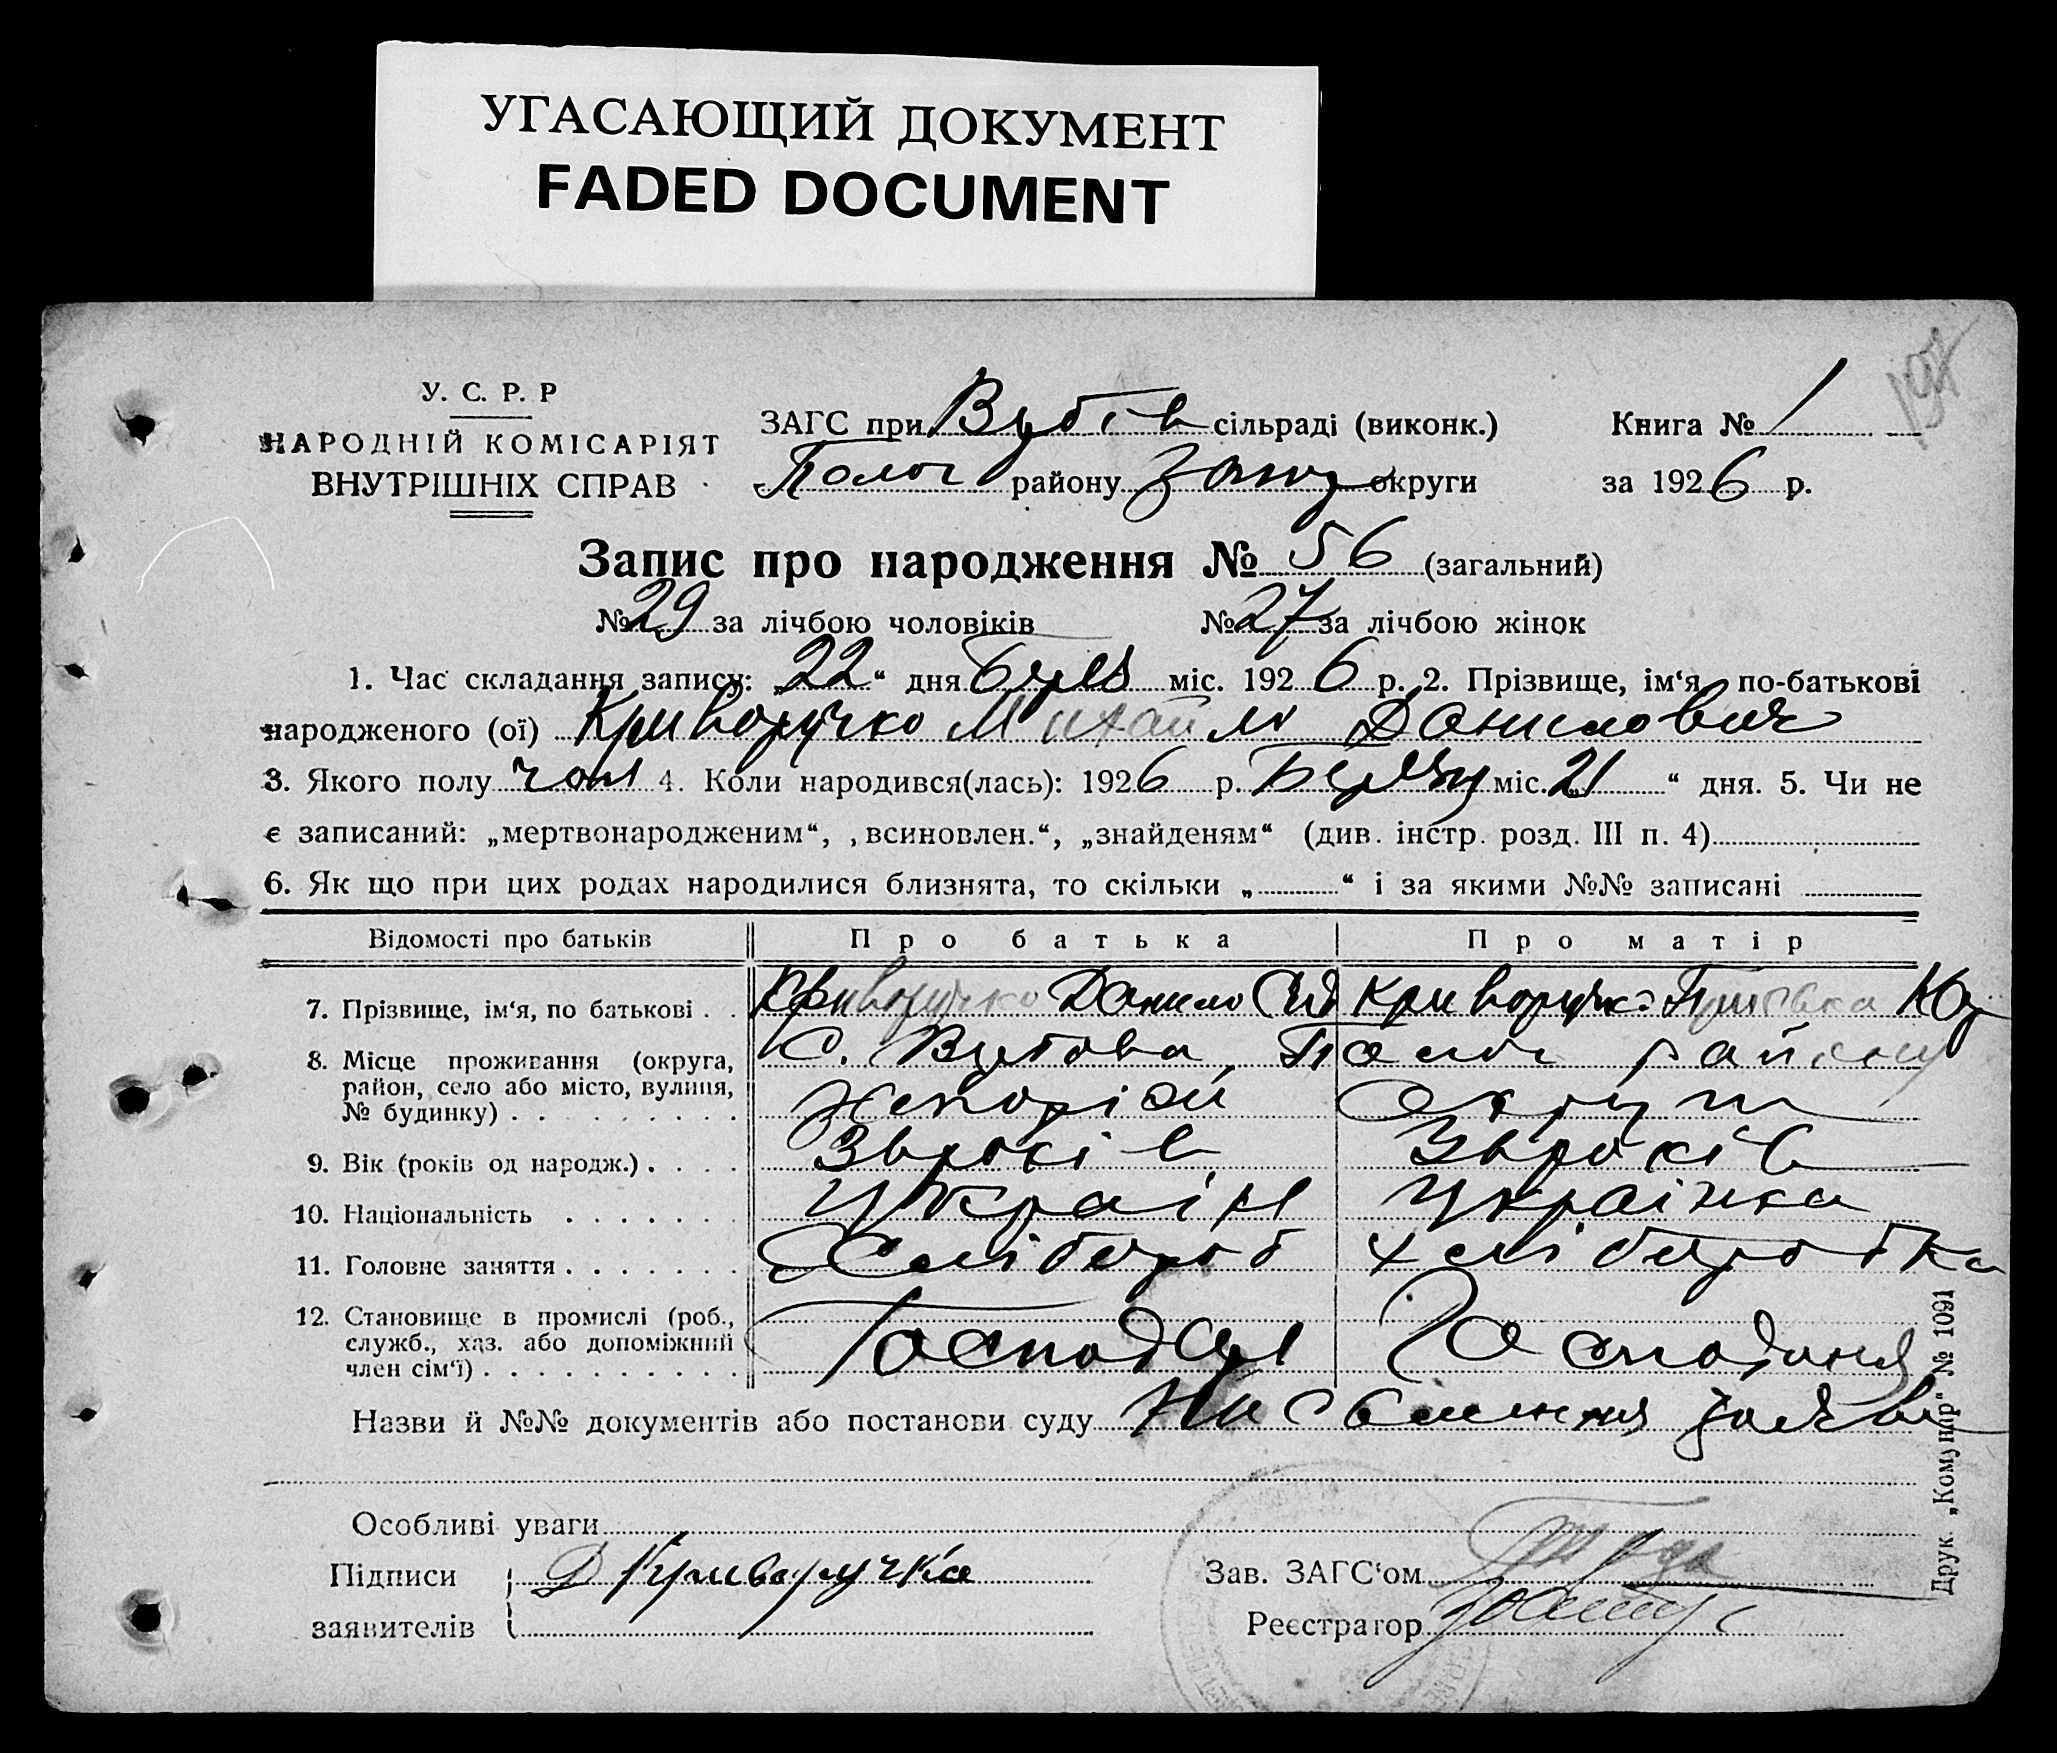 УГАСАЮЩИЙ ДОКУМЕНТ
FADED DOCUMENT
У. С. Р. Р
НАРОДНІЙ КОМІСАРІЯТ
ВНУТРІШНІХ СПРАВ
ЗАГС при сільраді (виконк.)
Полог району Запор округи
Книга № 1
за 1926 р.
Запис про народження № 56 (загальний)
№ 29 за лічбою чоловіків № 27 за лічбою жінок
1. Час складання запису: „22“ дня міс. 1926 р. 2. Прізвище, ім‘я, по-батькові
народженого (ої) Криворучко Михайло Данилович
3. Якого полу чол 4. Коли народився(лась): 1926 р. міс. „21“ дня. 5. Чи не
є записаний: „мертвонародженим“, „всиновлен.“, „знайденям“ (див. інстр. розд. III п. 4)
6. Як що при цих родах народилися близнята, то скільки „ “ і за якими №№ записані
Відомості про батьків Про батька Про матір
7. Прізвище, ім‘я, по батькові . . Криворучко Данило Криворучко
8. Місце проживання (округа, с. Полог району
район, село або місто, вулиця,
№ будинку) . . . . . . . . . округи
9. Вік (років од народж.) . . . . років років
10. Національність . . . . . . . Україн Українка
11. Головне заняття . . . . . . . Хлібороб хліборобка
12. Становище в промислі (роб.,
служб., хаз. або допоміжний Господар Господиня
член сім‘ї) . . . . . . . . . .
Назви й №№ документів або постанови суду заява
Особливі уваги
Підписи Д Криворучко
заявителів
Зав. ЗАГС‘ом
Реєстратор
Друк. „Комунар“ № 1091